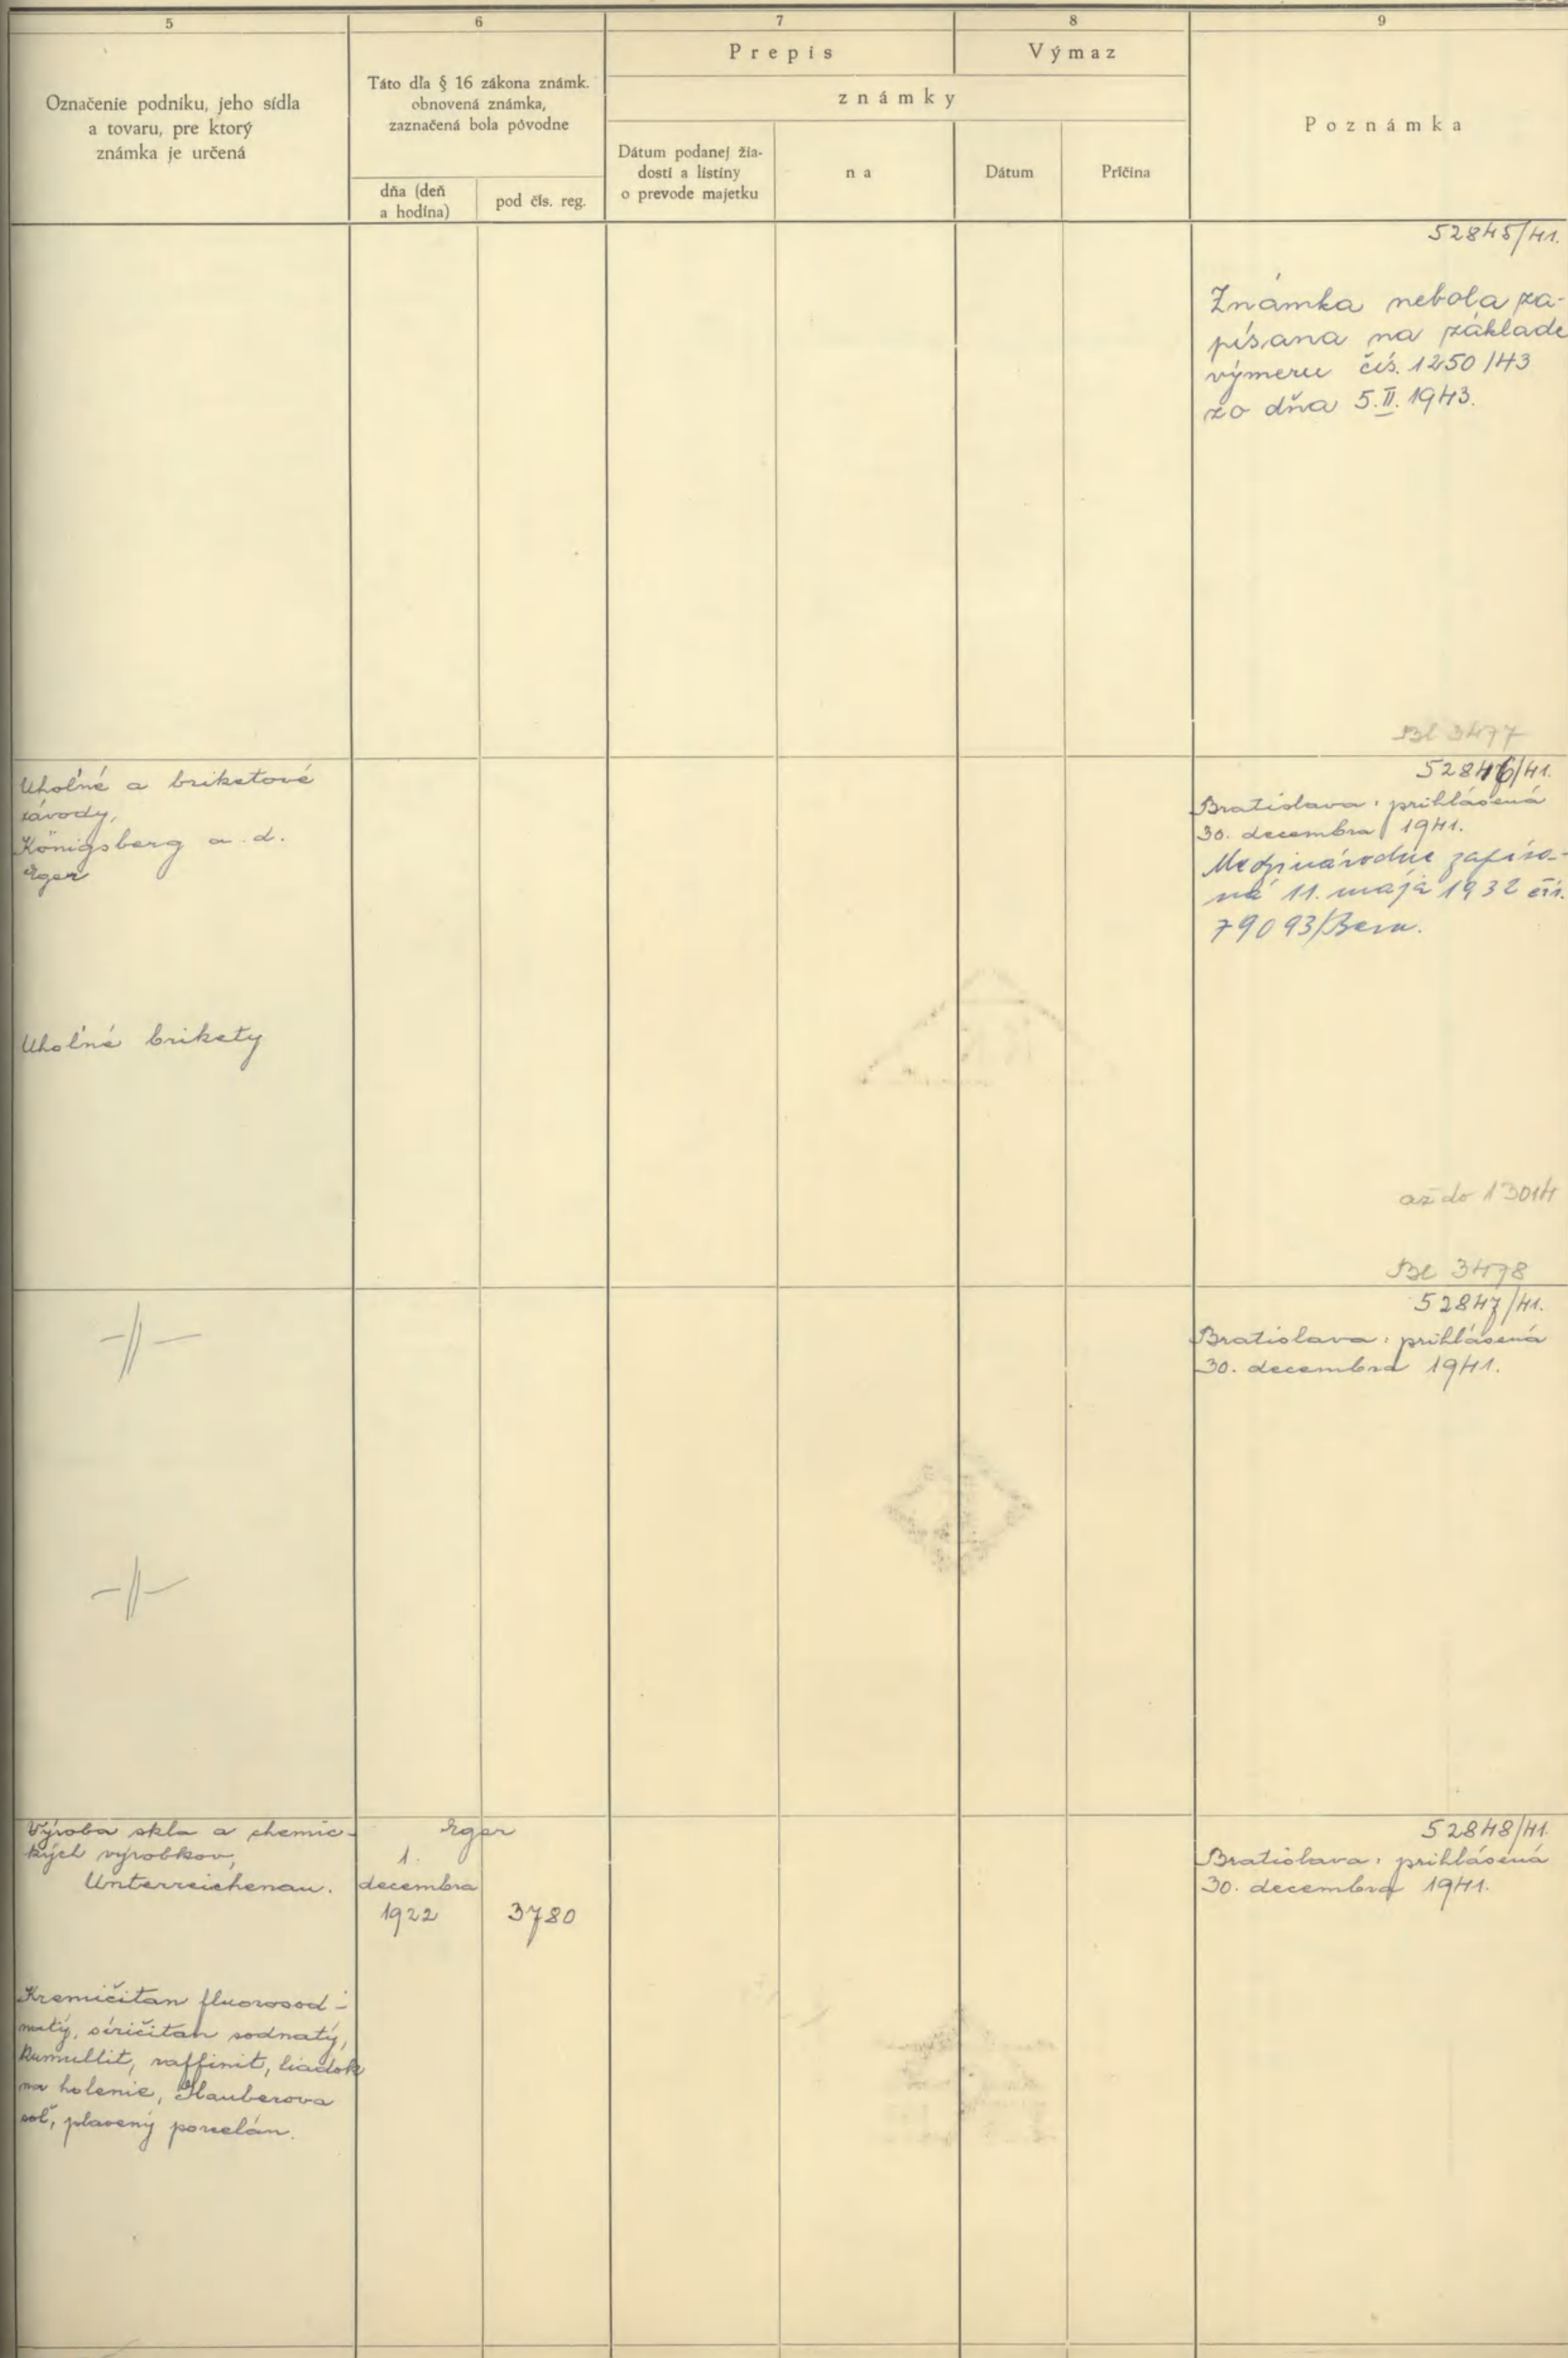 5
6
7
8
9
Označenie podniku, jeho sídla
a tovaru, pre ktorý
známka je určená
Táto dľa § 16 zákona známk.
obnovená známka,
zaznačená bola pôvodne
dňa (deň
a hodina)
pod čís. reg.
Prepis
Výmaz
známky
Dátum podanej žia-
dosti a listiny
o prevode majetku
na
Dátum
Príčina
Poznámka
52845/41.
Známka nebola za-
písaná na základe
výmeru čís. 1250/43
zo dňa 5.II. 1943.
Bl 3477
Uhoľné a briketové
závody,
Königsberg a. d.
Eger
Uhoľné brikety
52846/41.
Bratislava: prihlásená
30. decembra 1941.
Medzinárodne zapísa-
ná 11. mája 1932 čís.
79093/Bern.
až do 13014
Bl 3478
-//-
-//-
52847/41.
Bratislava: prihlásená
30. decembra 1941.
Výroba skla a chemic-
kých výrobkov,
Unterreichenau.
Eger
1.
decembra
1922
3780
Kremičitan fluorosod-
natý, siričitan sodnatý,
Rumullit, raffinit, liadok
na holenie, Glauberova
soľ, plavený porcelán.
52848/41.
Bratislava: prihlásená
30. decembra 1941.